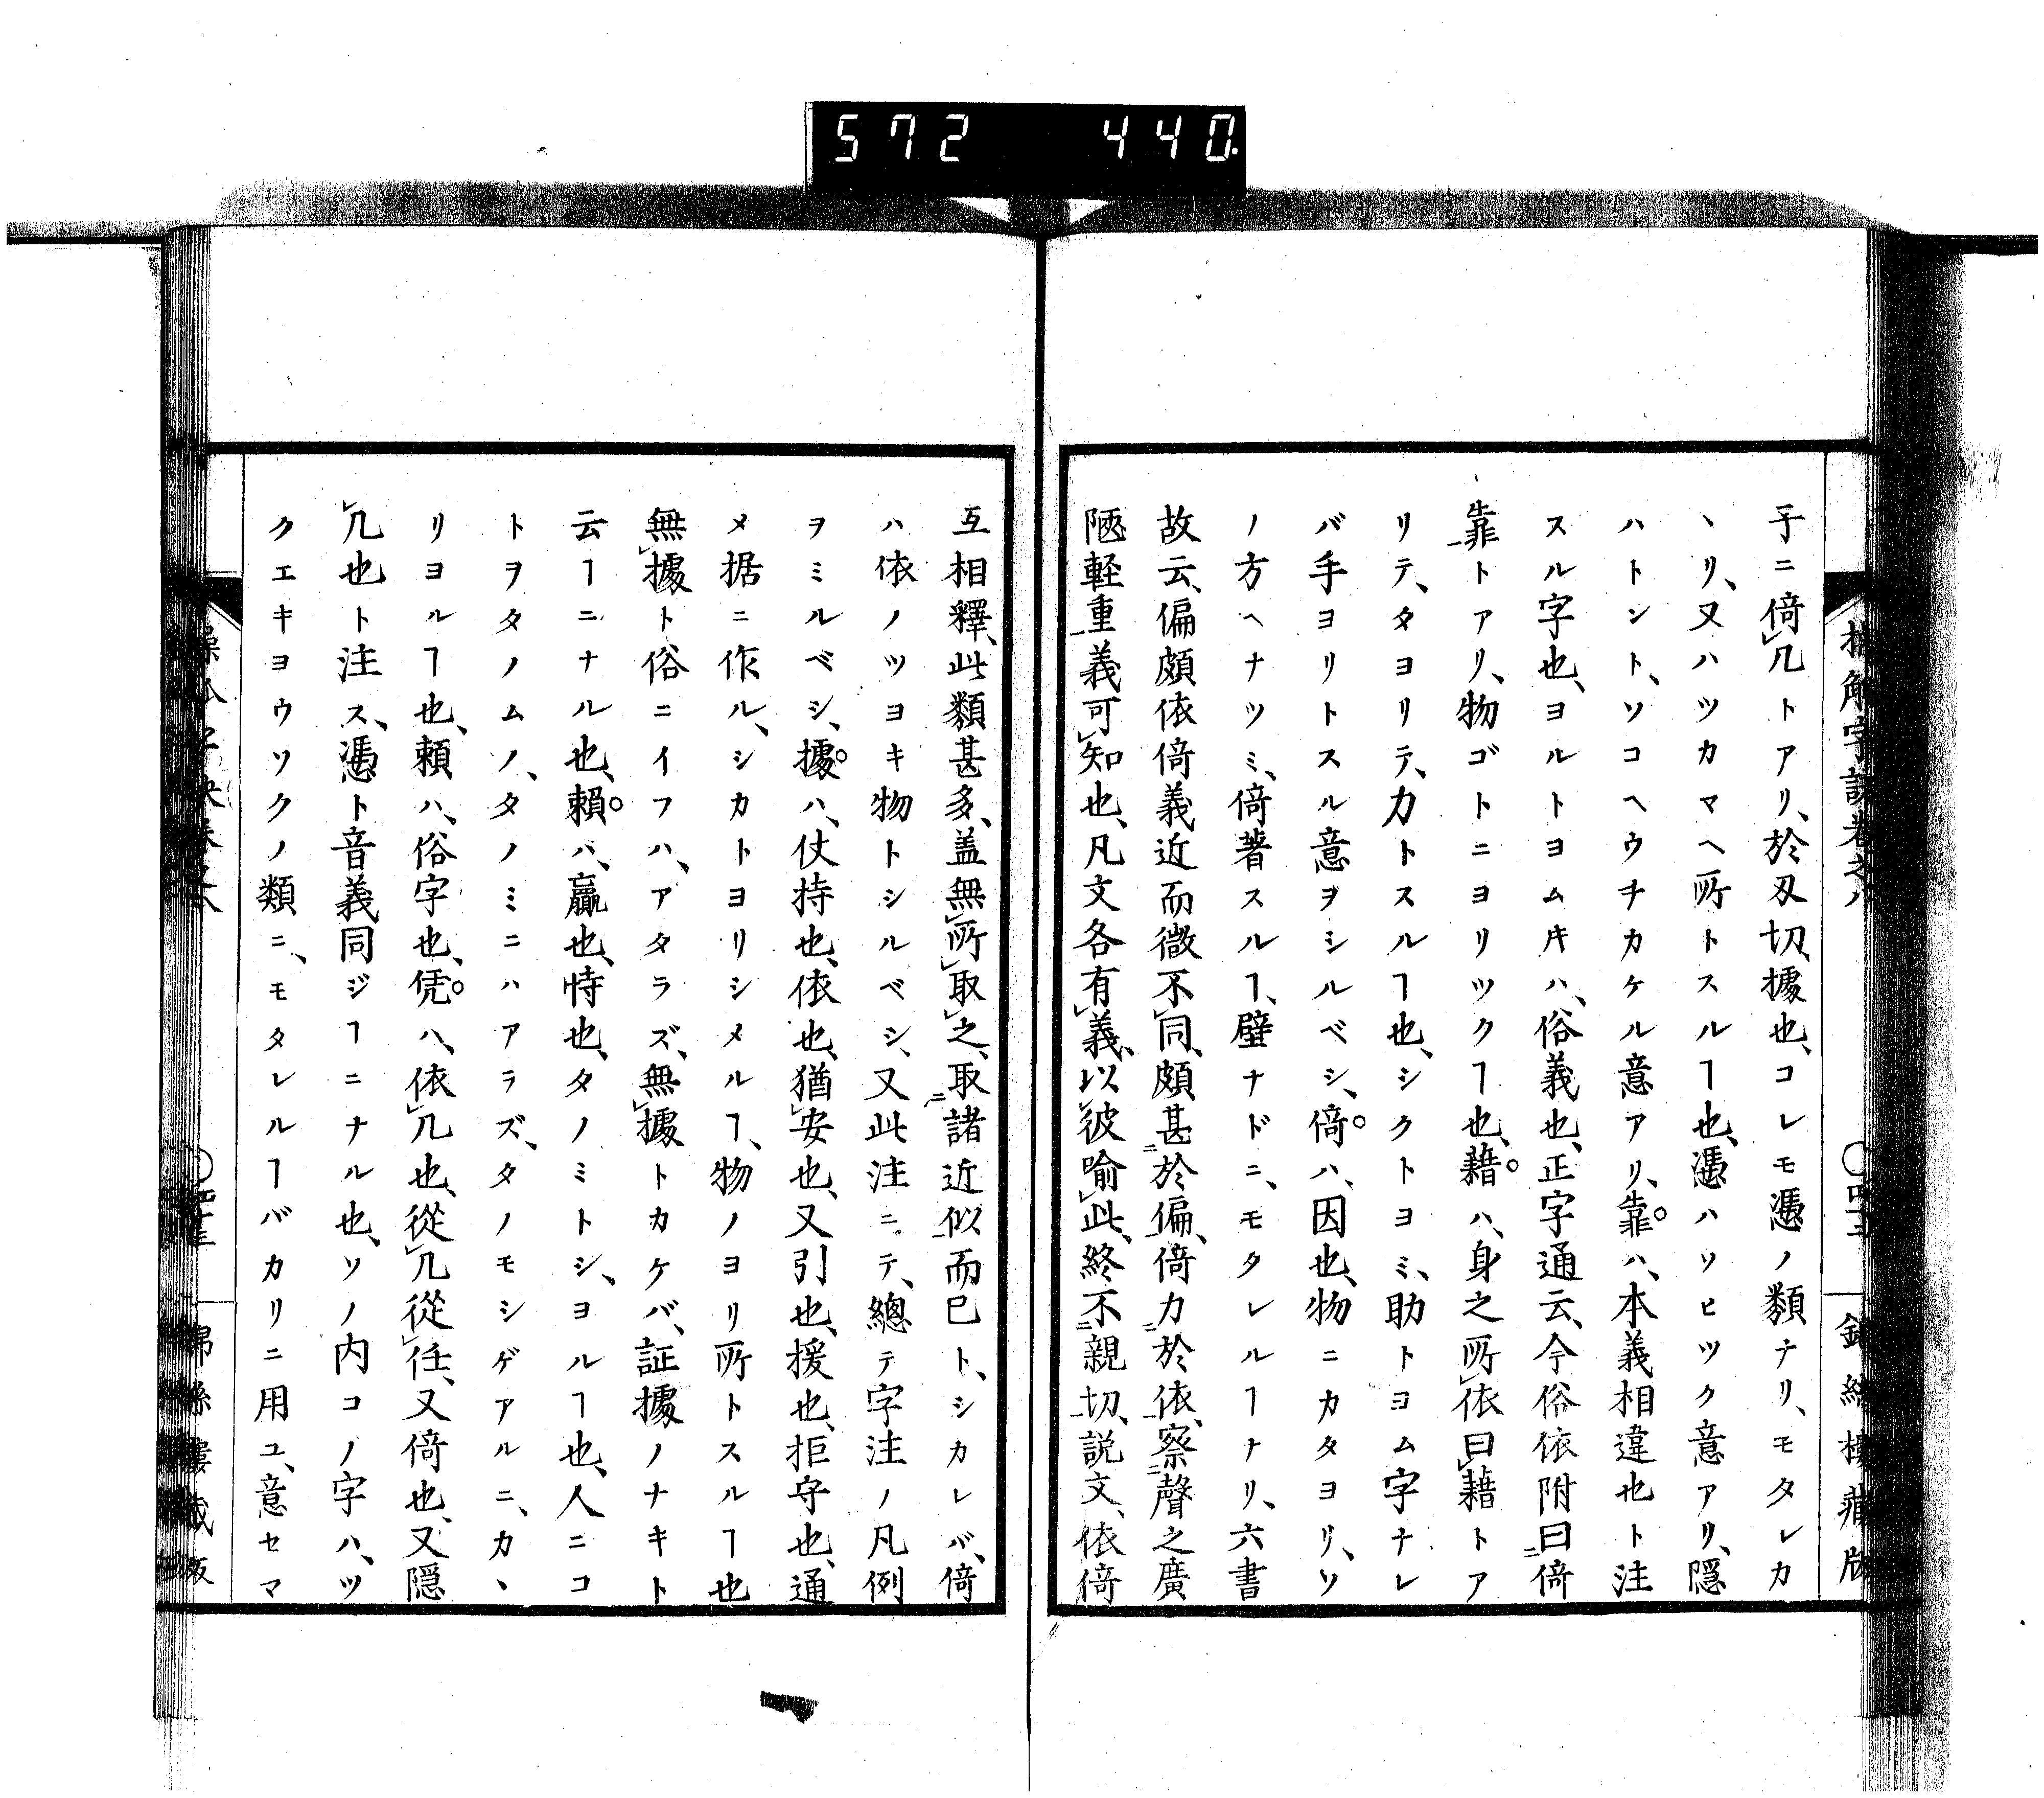 572 440
子ニ倚几トアリ、於刄切、據也、コレモ憑ノ類ナリ、モタレカ
ヽリ、又ハツカマヘ所トスルヿ也、憑ハソヒツク意アリ、隱
ハトント、ソコヘウチカケル意アリ、靠ハ、本義相違也ト注
スル字也、ヨルトヨムㇳキハ、俗義也、正字通云、今俗依附曰倚
靠トアリ、物ゴトニヨリツクヿ也、藉ハ、身之所依曰藉トア
リテ、タヨリテ、力トスルヿ也、シクトヨミ、助トヨム字ナレ
バ手ヨリトスル意ヲシルベシ、倚ハ、因也、物ニカタヨリ、ソ
ノ方ヘナツミ、倚著スルヿ、壁ナドニ、モタレルヿナリ、六書
故云、偏頗依倚義近而微不同、頗甚於偏、倚力於依、察聲之廣
陋軽重義可知也、凡文各有義、以彼喩此、終不親切、説文、依倚
互相釋、此類甚多、盖無所取之、取諸近似而已ト、シカレバ、倚
ハ依ノツヨキ物トシルベシ、又此注ニテ、總テ字注ノ凡例
ヲミルベシ、據ハ、仗持也、依也、猶安也、又引也、援也、拒守也、通
メ据ニ作ル、シカトヨリシメルヿ、物ノヨリ所トスルヿ也
無據ト俗ニイフハ、アタラズ、無據トカケバ、証據ノナキト
云ヿニナル也、頼ハ、贏也、恃也、タノミトシ、ヨルヿ也、人ニコ
トヲタノムノ、タノミニハアラズ、タノモシゲアルニ、カヽ
リヨルヿ也、頼ハ、俗字也、凭ハ、依几也、從几從任、又倚也、又隠
几也ト注ス、憑ト音義同ジヿニナル也、ソノ内コノ字ハ、ツ
クエキヨウソクノ類ニ、モタレルヿバカリニ用ユ、意セマ